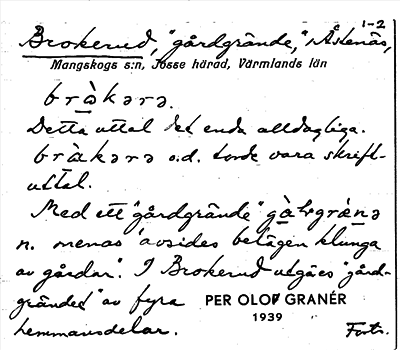 1-2
Brokerud, "gårdgrände," i Åstenäs,
Mangskogs s:n, Jösse härad, Värmlands län
bràkərə.
Detta uttal det enda alldagliga.
bràkərə o.d. torde vara skrift-
uttal.
Med ett "gårdgrände"
n. menas "avsides belägen klunga
av gårdar". I Brokerud utgöres "gård-
grändet" av fyra PER OLOF GRANÉR
1939
hemmansdelar. Forts.